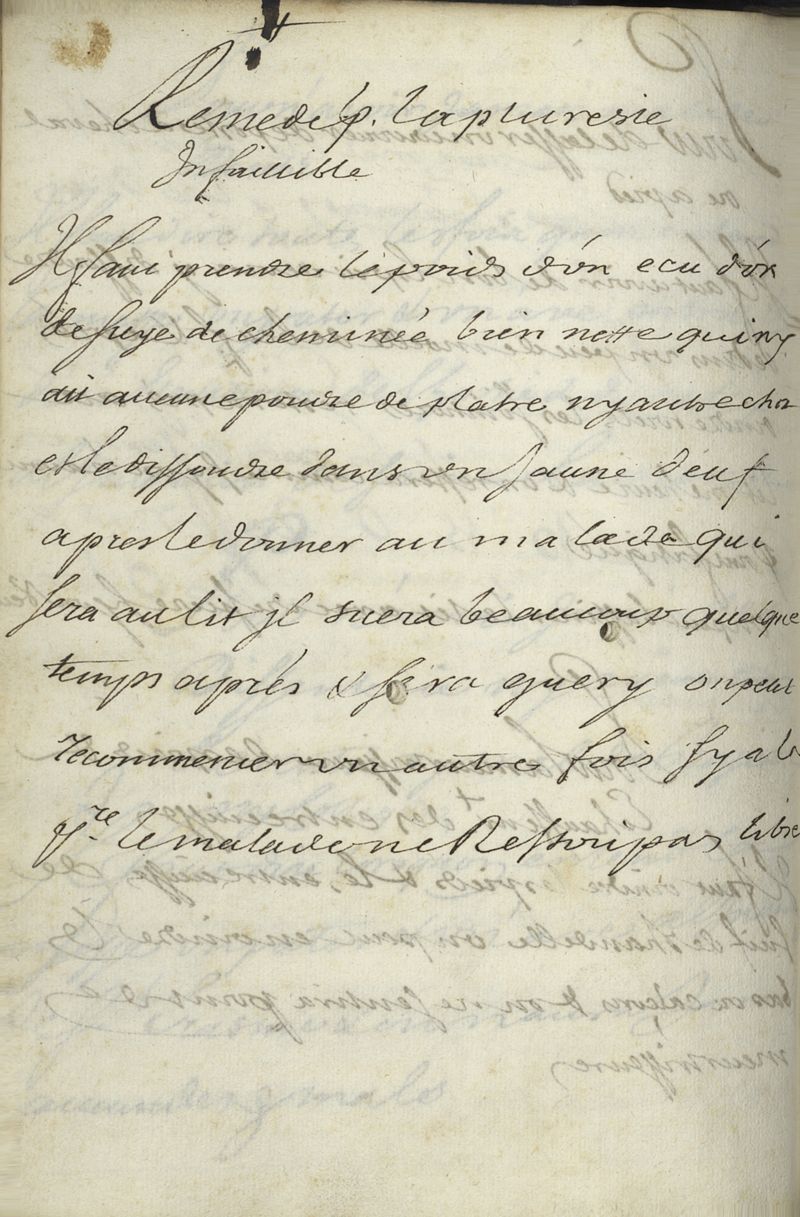 Remede p. la pluresie
Infaillible
Il faut prendre le poids d'ún ecu d'ór
de suye de cheminée bien nette qui ny
ait aucune poudre de platre ny autre chos
et le dissoudre dans un Jaune d'euf
apres le donner au malade qui
sera au lit jl suera beaucoup quelque
temps après & sera guery on peut
recommencer un autre fois sy a la
p.re le malade ne Ressort pas libre